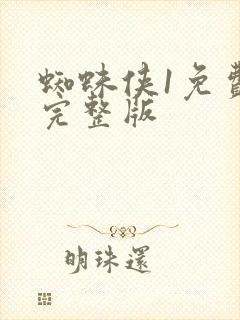 蜘蛛侠1免費
完整版
明珠還